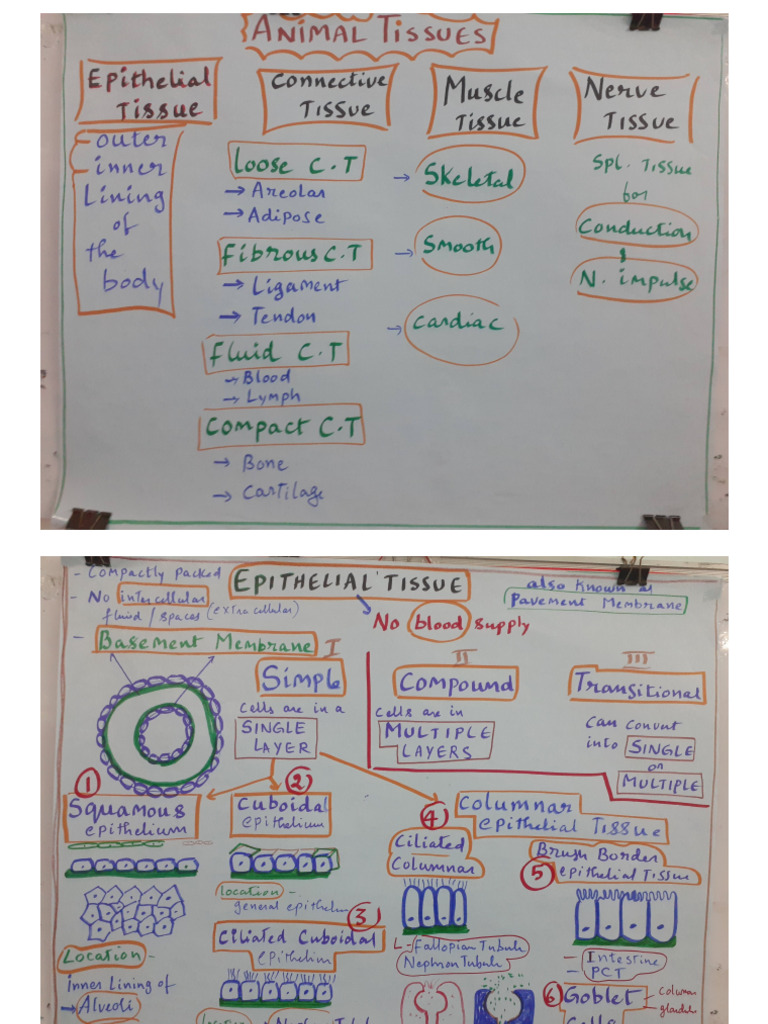 ANIMAL TISSUES
Epithelial
Tissue
outer
inner
Lining
of
the
body
Connective
Tissue
Loose C.T
→ Areolar
→ Adipose
Fibrous C.T
→ Ligament
→ Tendon
Fluid C.T
→ Blood
→ Lymph
Compact C.T
→ Bone
→ Cartilage
Muscle
Tissue
→ Skeletal
→ Smooth
→ Cardiac
Nerve
Tissue
Spl. Tissue
for
Conduction
N. impulse
- Compactly packed
- No intercellular
fluid / spaces (extracellular)
- Basement Membrane
EPITHELIAL TISSUE
No blood supply
also known as
Pavement Membrane
I
Simple
Cells are in a
SINGLE
LAYER
II
Compound
Cells are in
MULTIPLE
LAYERS
III
Transitional
Can convert
into SINGLE
or
MULTIPLE
1
Squamous
epithelium
Location -
Inner Lining of
→ Alveoli
2
Cuboidal
epithelium
Location -
general epithelium
3
Ciliated Cuboidal
epithelium
Columnar
epithelial Tissue
4
Ciliated
Columnar
L - Fallopian Tubule
Nephron Tubule
Brush Border
5 epithelial Tissue
- Intestine
- PCT
6 Goblet
Cells